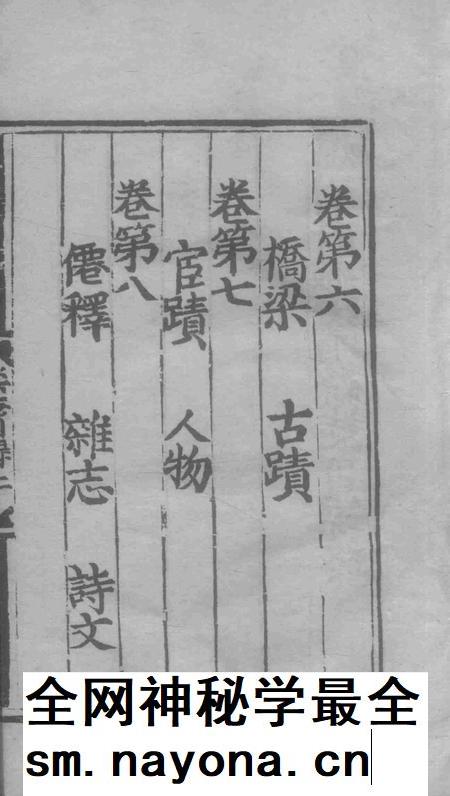 卷第六
橋梁 古蹟
卷第七
宦蹟 人物
卷第八
僊釋 雜志 詩文
全网神秘学最全
sm.nayona.cn